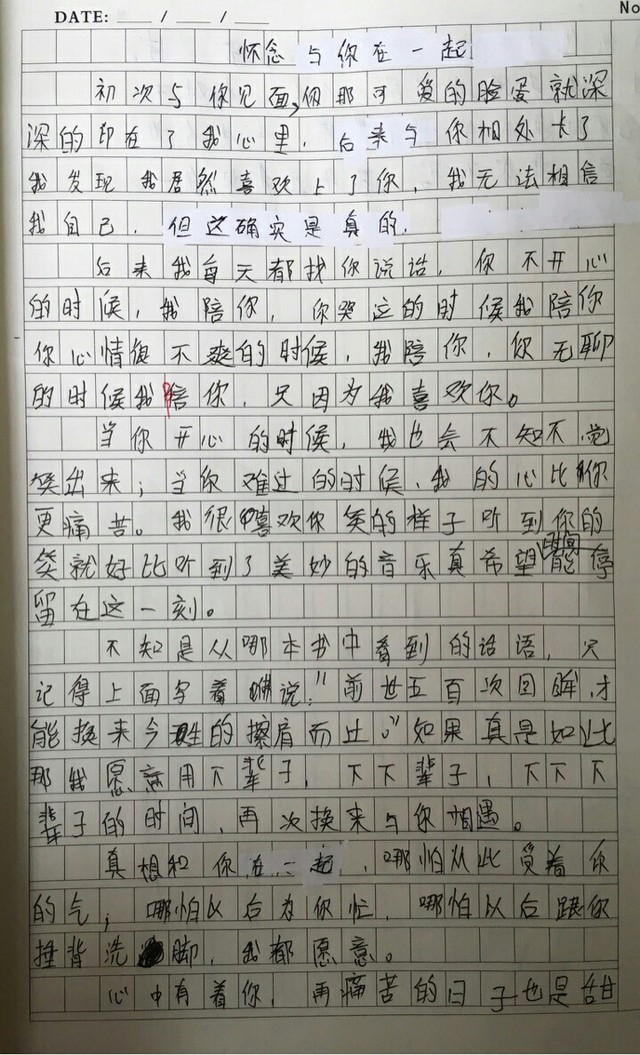 DATE: / /
No
怀念与你在一起
初次与你见面,你那可爱的脸蛋就深
深的印在了我心里,后来与你相处长了
我发现我居然喜欢上了你,我无法相信
我自己,但这确实是真的.
后来我每天都找你说话,你不开心
的时候,我陪你,你哭泣的时候我陪你
你心情很不爽的时候,我陪你,你无聊
的时候我陪你,只因为我喜欢你。
当你开心的时候,我也会不知不觉
笑出来;当你难过的时候,我的心比你
更痛苦。我很喜欢你笑的样子听到你的
笑就好比听到了美妙的音乐真希望时间能停
留在这一刻。
不知是从哪本书中看到的话语,只
记得上面写着 说:"前世五百次回眸,才
能换来今生的擦肩而过。"如果真是如此
那我愿意用下辈子,下下辈子,下下下
辈子的时间,再次换来与你相遇。
真想和你在一起,哪怕从此受着你
的气;哪怕以后为你忙,哪怕以后跟你
捶背洗脚,我都愿意。
心中有着你,再痛苦的日子也是甜